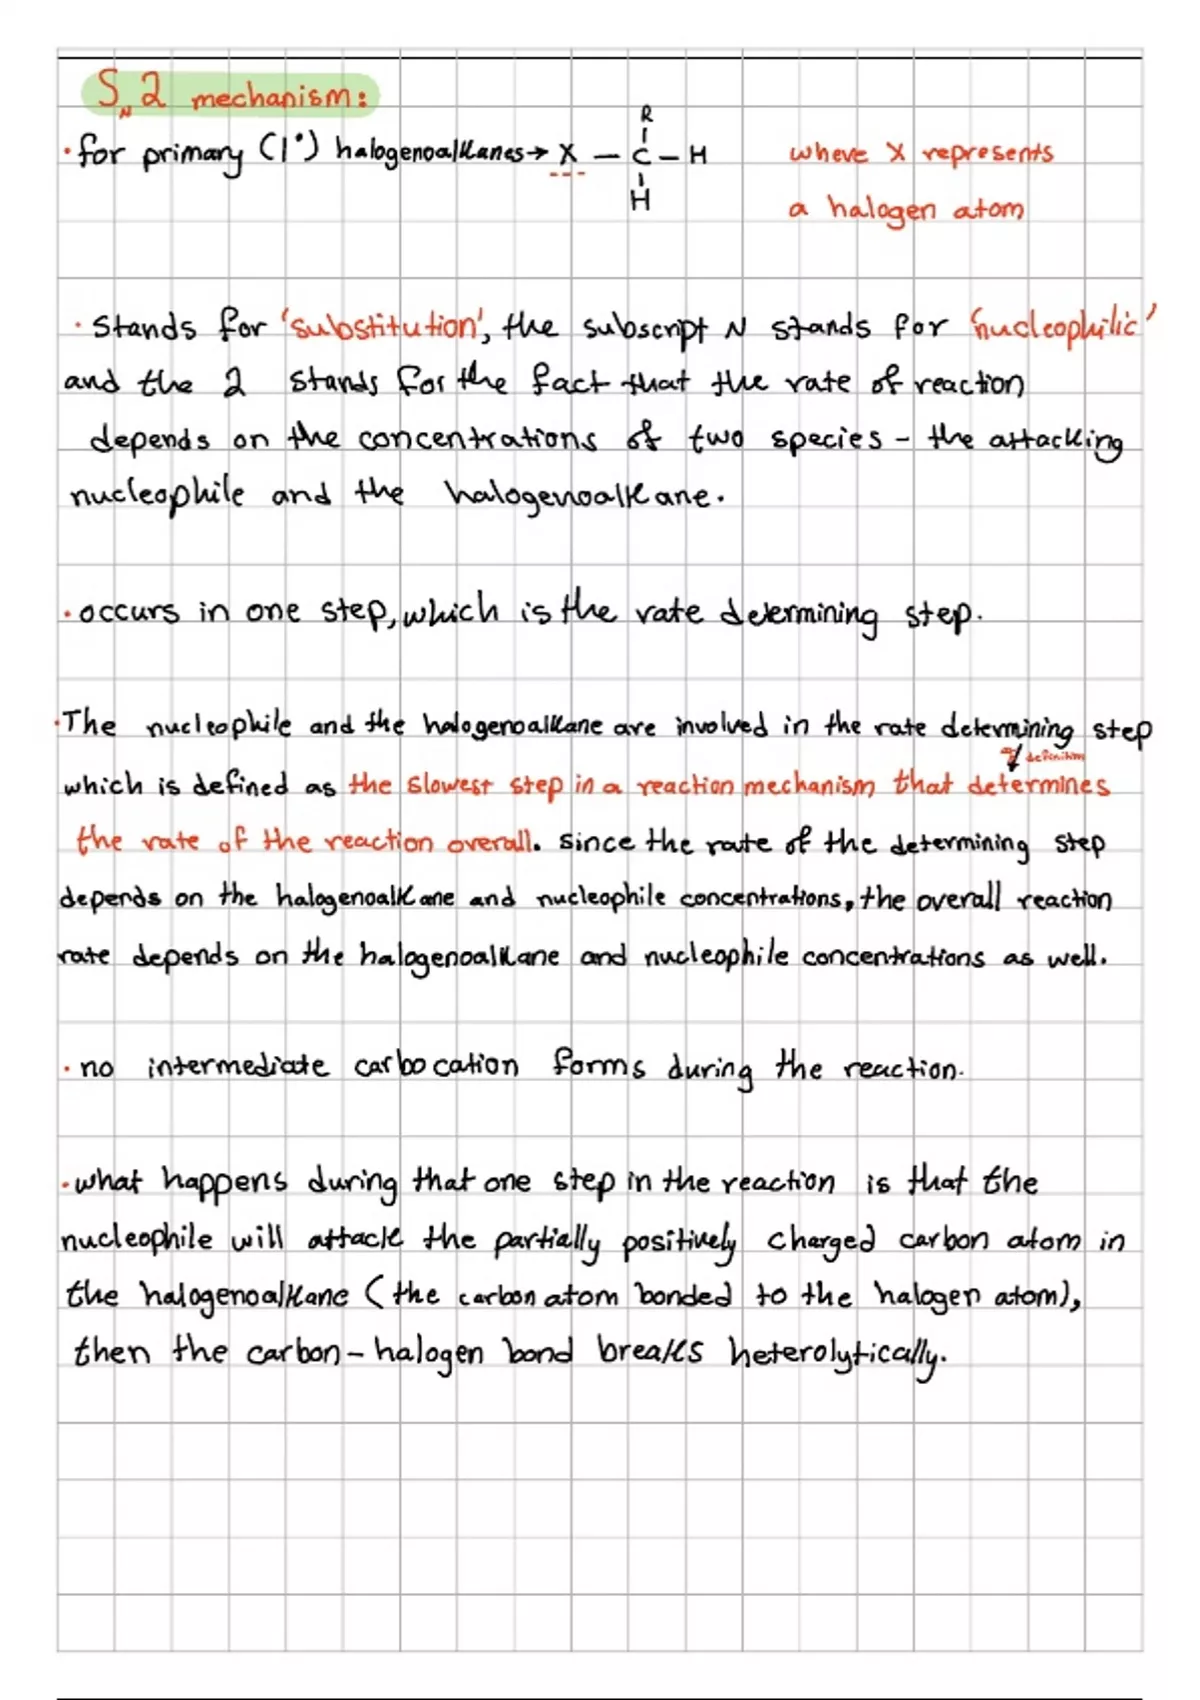 SN2 mechanism:
R
· for primary (1°) halogenoalkanes → X – C – H where X represents
H a halogen atom
· Stands for 'substitution', the subscript N stands for 'nucleophilic'
and the 2 stands for the fact that the rate of reaction
depends on the concentrations of two species – the attacking
nucleophile and the halogenoalkane.
· occurs in one step, which is the rate determining step.
· The nucleophile and the halogenoalkane are involved in the rate determining step
definition
which is defined as the slowest step in a reaction mechanism that determines
the rate of the reaction overall. since the rate of the determining step
depends on the halogenoalkane and nucleophile concentrations, the overall reaction
rate depends on the halogenoalkane and nucleophile concentrations as well.
· no intermediate carbocation forms during the reaction.
· what happens during that one step in the reaction is that the
nucleophile will attack the partially positively charged carbon atom in
the halogenoalkane (the carbon atom bonded to the halogen atom),
then the carbon–halogen bond breaks heterolytically.